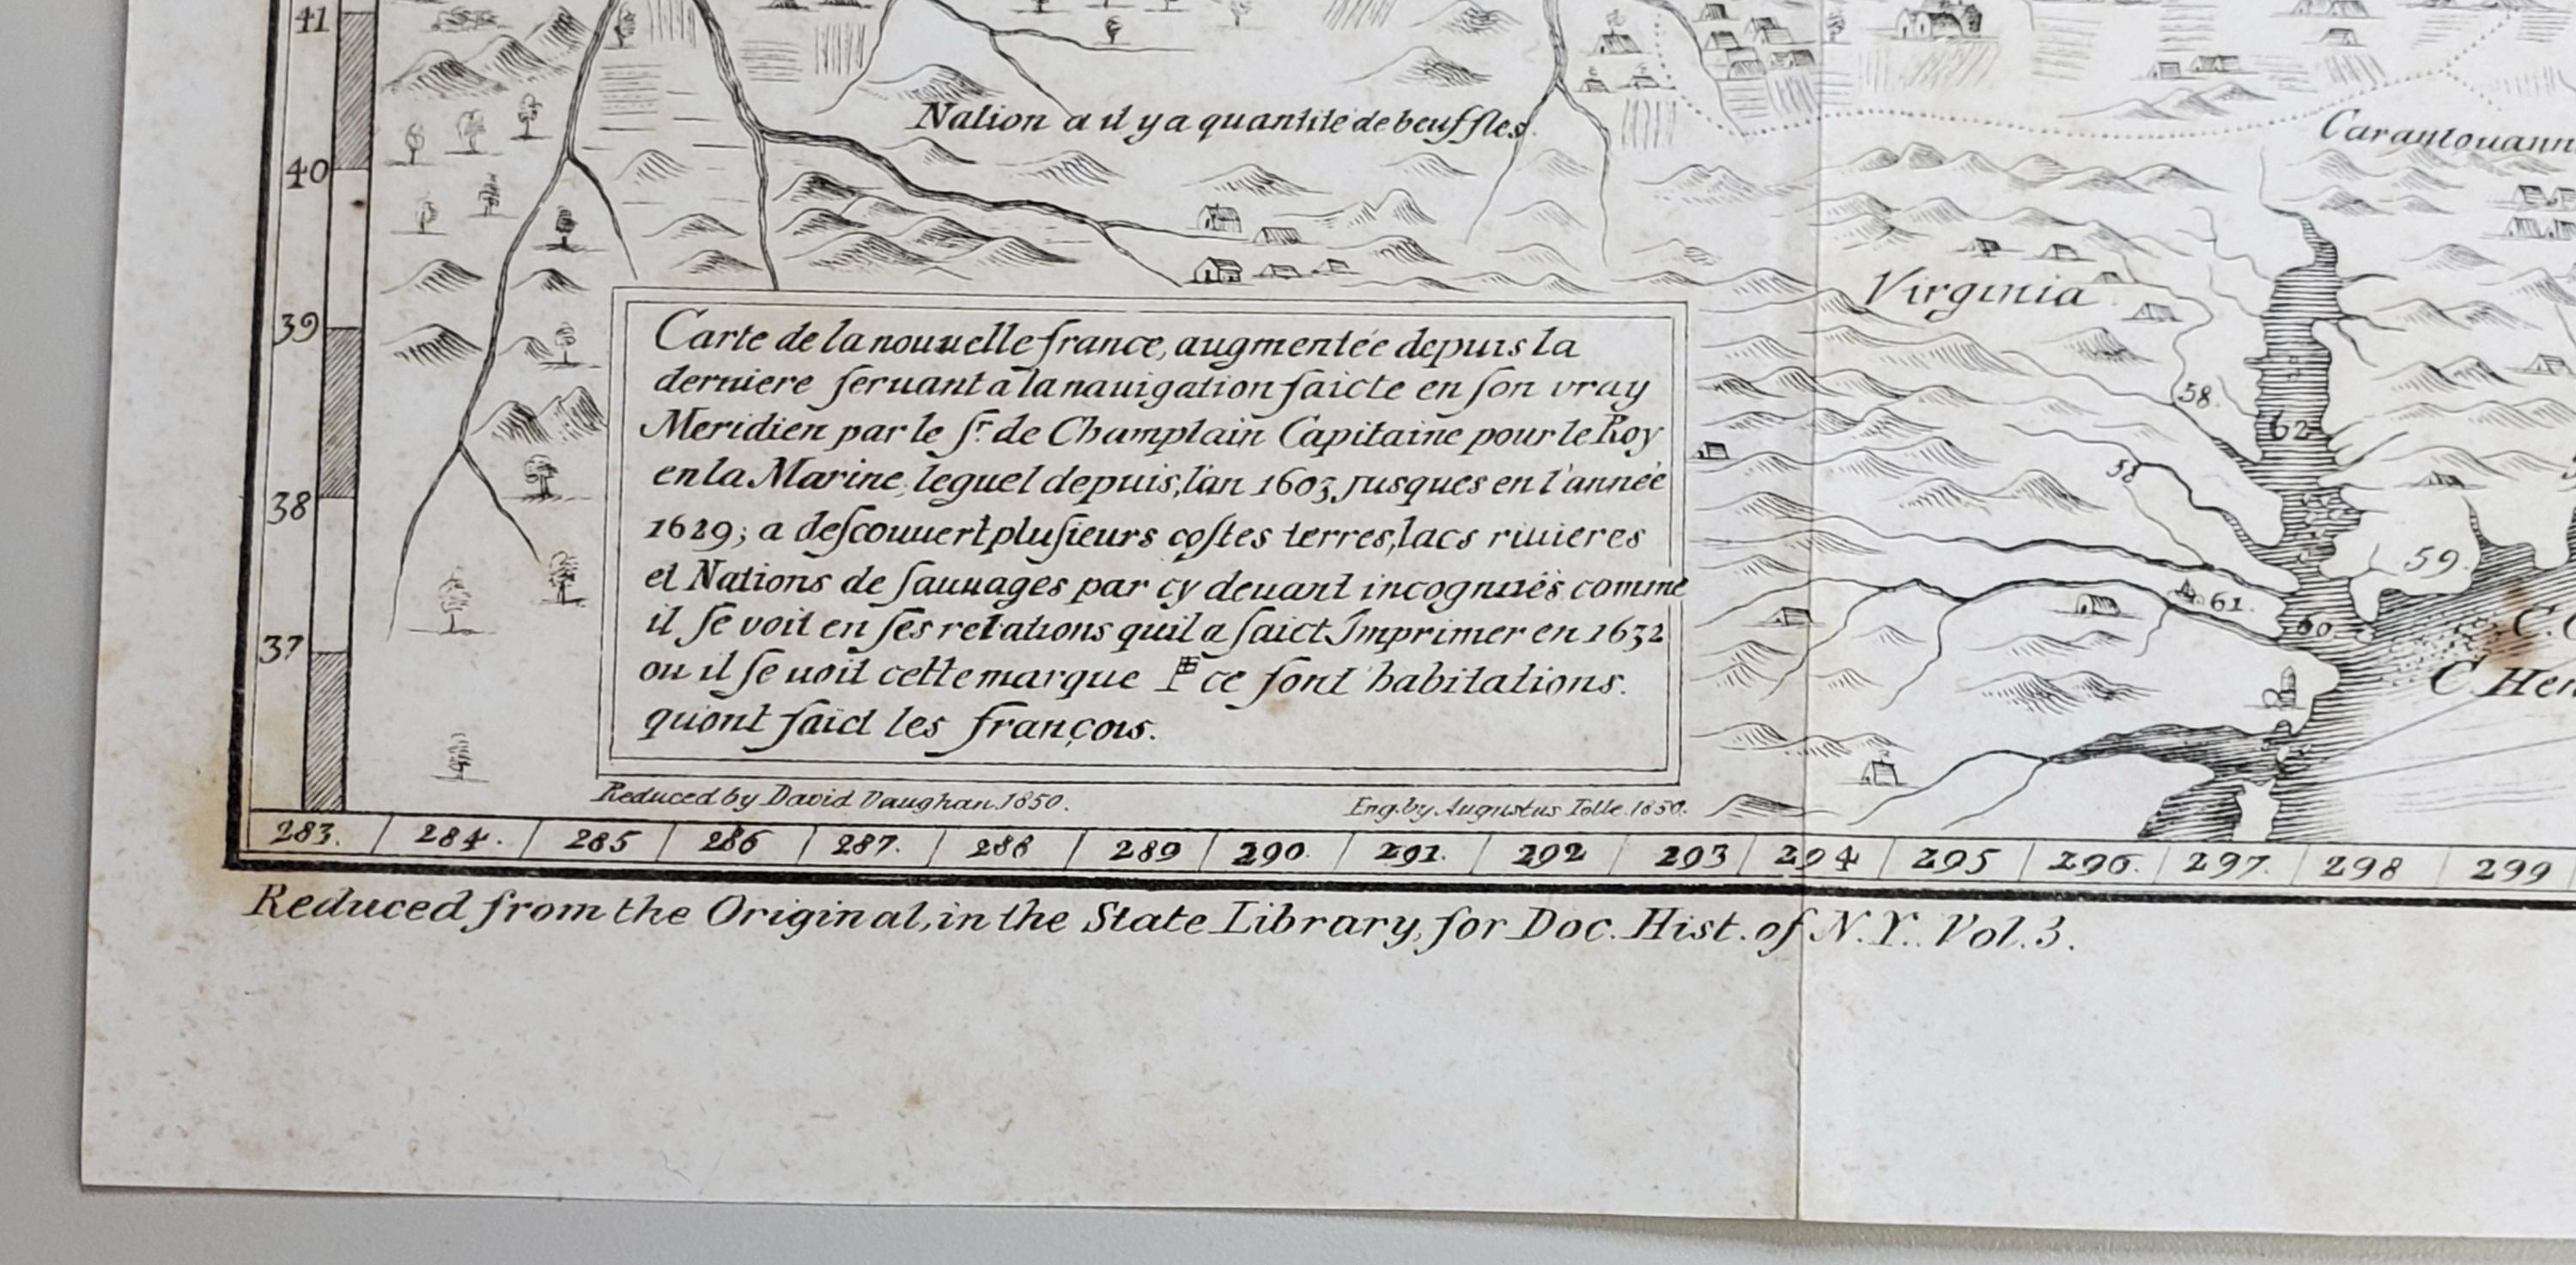 41
Nation a il y a quantité de beuffles.
Carantouann
40
Virginia
39
Carte de la nouuelle france, augmentée depuis la
derniere seruant a la nauigation faicte en son vray
Meridien par le Sr. de Champlain Capitaine pour le Roy
en la Marine, lequel depuis, l'an 1603 jusques en l'année
1629; a descouuert plusieurs costes terres, lacs riuieres
et Nations de sauuages par cy deuant incognuës comme
il se voit en ses relations quil a faict Imprimer en 1632
ou il se uoit cette marque ce sont habitations.
quont faict les françois.
58.
62
58
38
59.
61.
60
37
C. Hen
Reduced by David Vaughan. 1850.
Eng. by Augustus Tolle. 1850.
283. 284. 285 286 287. 288 289 290. 291. 292 293 294 295 296. 297. 298 299
Reduced from the Original, in the State Library, for Doc. Hist. of N.Y. Vol. 3.